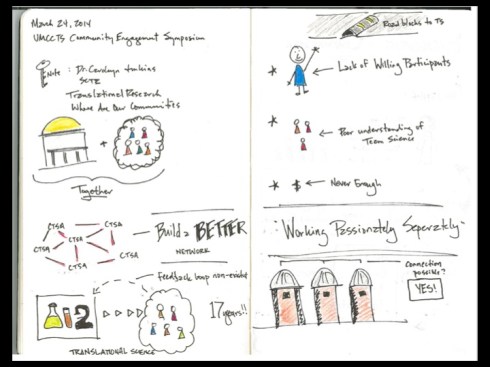 March 24, 2014
UMCCTS Community Engagement Symposium
Note : Dr. Carolyn Jenkins
SCTR
Translational Research
Where Are Our Communities
+
Together
CTSA
CTSA
CTSA
CTSA
CTSA
CTSA
CTSA
Build a BETTER
NETWORK
Feedback loop non-existent
2
17 years!!
TRANSLATIONAL SCIENCE
Road blocks to TS
* Lack of Willing Participants
* Poor understanding of
Team Science
* $ Never Enough
"Working Passionately Seperately"
Connection
possible?
YES!